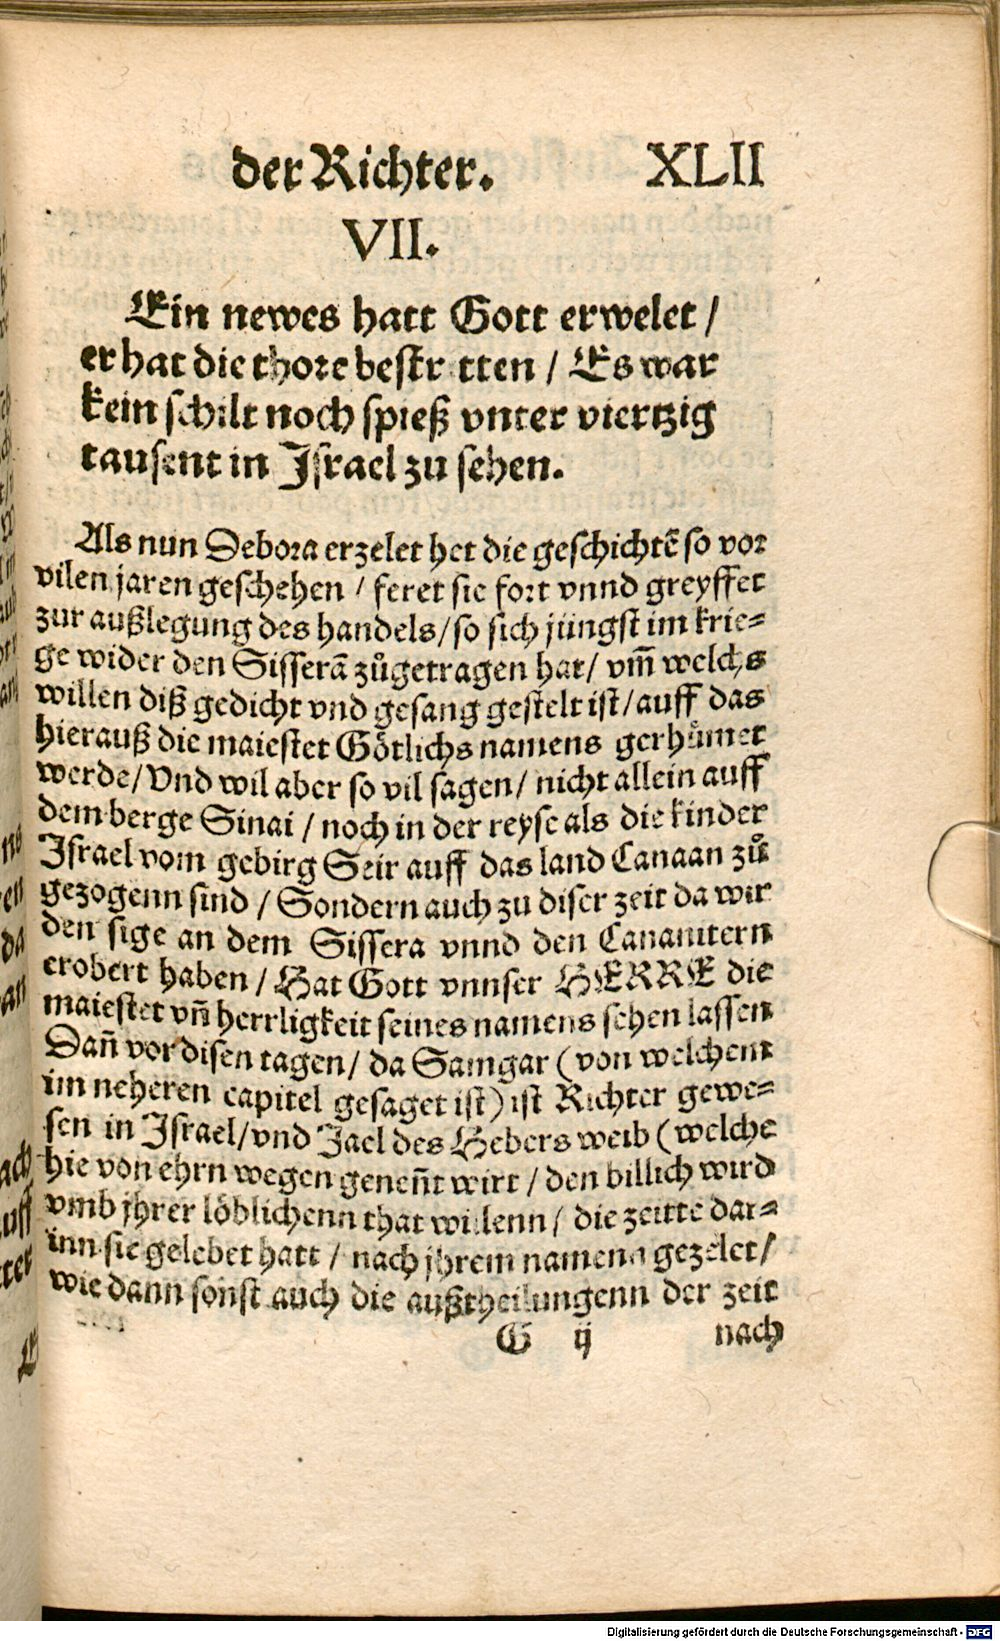 der Richter. XLII
VII.
Ein newes hatt Gott erwelet /
er hat die thore bestr tten / Es war
kein schilt noch spieß vnter viertzig
tausent in Jsrael zu sehen.
Als nun Debora erzelet het die geschichtẽ so vor
vilen jaren geschehen / feret sie fort vnnd greyffet
zur außlegung des handels / so sich jüngst im krie=
ge wider den Sisserã zůgetragen hat / vm̃ welchs
willen diß gedicht vnd gesang gestelt ist / auff das
hierauß die maiestet Götlichs namens gerhůmet
werde / Vnd wil aber so vil sagen / nicht allein auff
dem berge Sinai / noch in der reyse als die kinder
Jsrael vom gebirg Seir auff das land Canaan zů
gezogenn sind / Sondern auch zu diser zeit da wir
den sige an dem Sissera vnnd den Cananitern
erobert haben / Hat Gott vnnser HERRE die
maiestet vñ herrligkeit seines namens sehen lassen
Dañ vor disen tagen / da Samgar (von welchem
im neheren capitel gesaget ist) ist Richter gewe=
sen in Jsrael / vnd Jael des Hebers weib (welche
hie von ehrn wegen geneñt wirt / den billich wird
vmb jhrer löblichenn that willenn / die zeitte dar=
inn sie gelebet hatt / nach jhrem namenn gezelet /
wie dann sonst auch die außtheilungenn der zeit
G ij nach
Digitalisierung gefördert durch die Deutsche Forschungsgemeinschaft - DFG